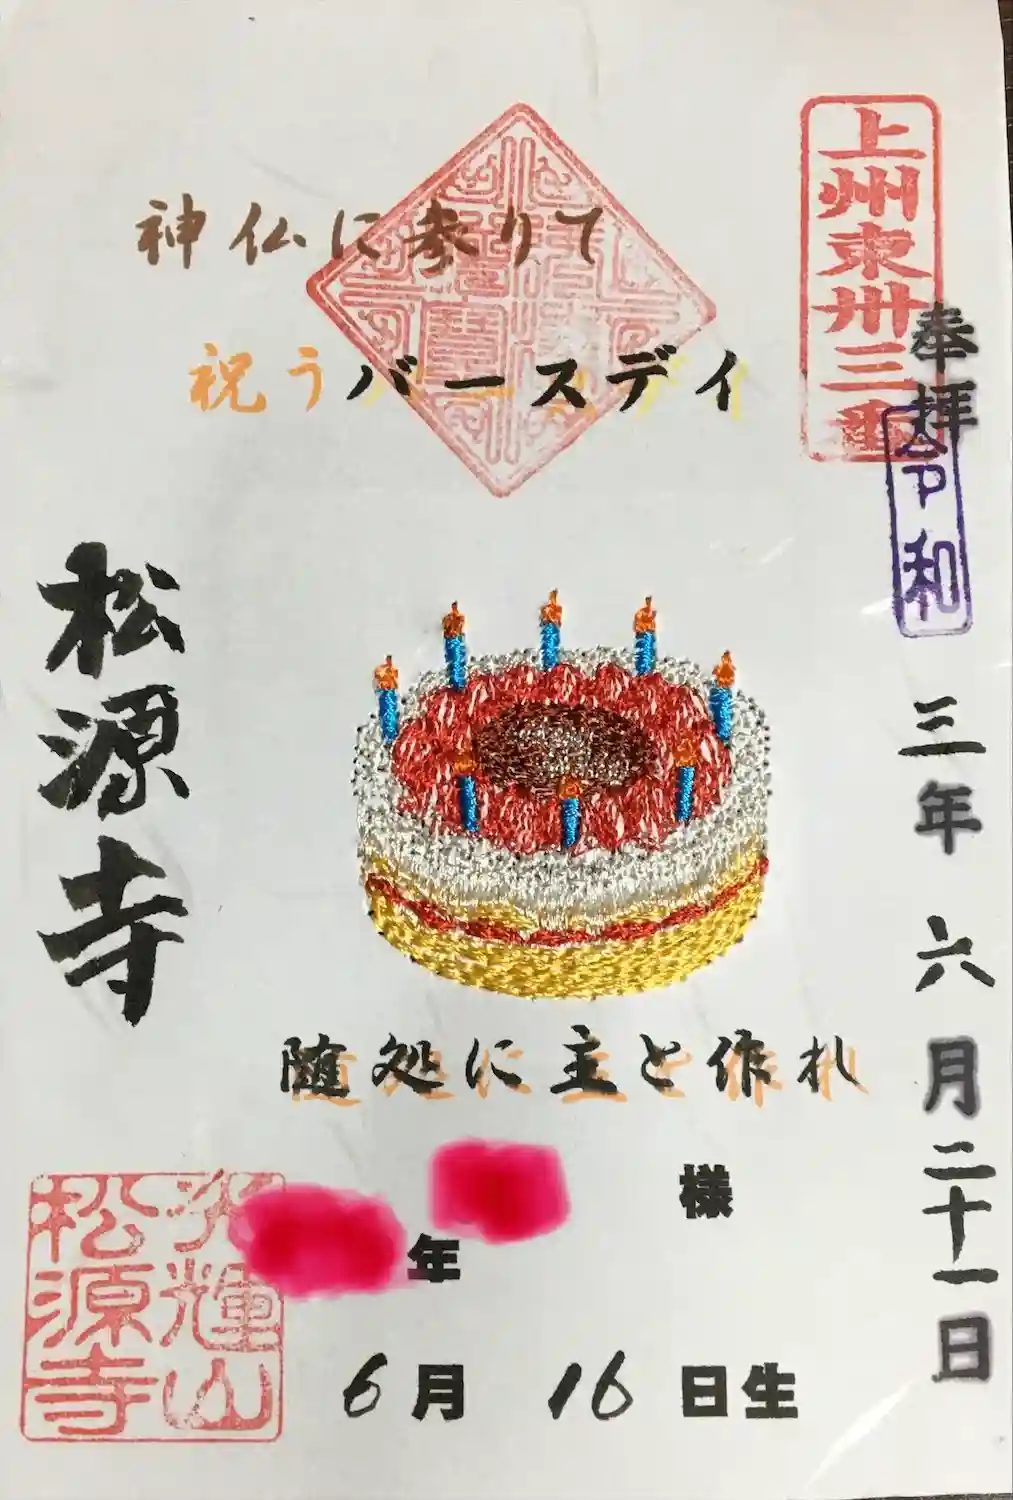 上州東卅三番
奉拝
令和
三年 六月二十一日
神仏に参りて
祝うバースデイ
随処に主と作れ
様
年
6月 16日生
松源寺
松源寺